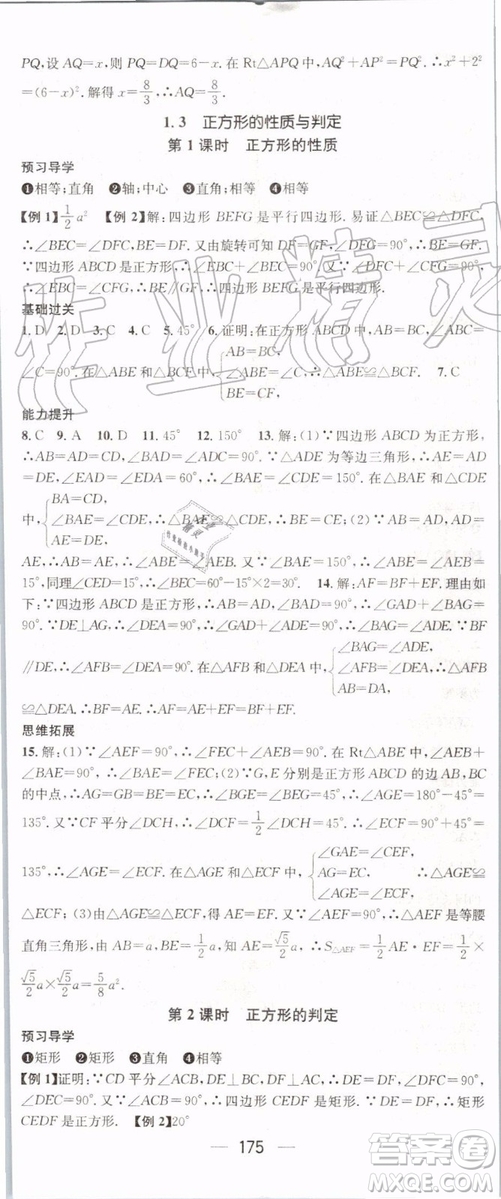 PQ,设 AQ=x,则 PQ=DQ=6-x. 在 Rt△APQ 中,AQ²+AP²=PQ²,∴x²+2²
=(6-x)². 解得 x=8/3,∴AQ=8/3.
1.3 正方形的性质与判定
第1课时 正方形的性质
预习导学
❶相等;直角 ❷轴;中心 ❸直角;相等 ❹相等
【例1】1/2 a² 【例2】解:四边形 BEFG 是平行四边形. 易证△BEC≌△DFC,
∴∠BEC=∠DFC,∠EBC=∠FDC. 由旋转可知 DF=GF,∠DFG=90°. ∵
∵四边形 ABCD 是正方形,
∴∠EBC=∠CFG. ∴四边形 BEFG 是平行四边形.
基础过关
1. D 2. D 3. C 4. C 5. 45° 6. 证明:∵四边形 ABCD 是正方形,∴AB=BC,∠ABE=
∠C=90°. 在△ABE 和△BCF 中,{AB=BC, ∠ABE=∠C, BE=CF, ∴△ABE≌△BCF. 7. C
能力提升
8. C 9. A 10. D 11. 45° 12. 150° 13. 解:(1)∵四边形 ABCD 为正方形,
∴AB=AD=CD,∠BAD=∠ADC=90°. ∵△ADE 为等边三角形,∴AE=AD
=DE,∠EAD=∠EDA=60°,∴∠BAE=∠CDE=150°. 在△BAE 和△CDE
中,{BA=CD, ∠BAE=∠CDE, AE=DE, ∴△BAE≌△CDE,∴BE=CE;(2)∵AB=AD,AD=
AE,∴AB=AE,∴∠ABE=∠AEB. 又∵∠BAE=150°,∴∠ABE=∠AEB=
15°,同理∠CED=15°,∴∠BEC=60°-15°×2=30°. 14. 解:AF=DE. 理由如
下:∵四边形 ABCD 是正方形,∴AB=AD,∠DAB=90°. ∴∠GAD+∠BAG=
90°. ∵DE⊥AG,∴∠GAD+∠ADE=90°. ∴∠ADE=∠BAG. 又∵BF
∥DE,∴∠AFB=∠DEA=90°. 在△AFB 和△DEA 中,{∠BAG=∠ADE, ∠AFB=∠DEA, AB=DA, ∴△AFB
≌△DEA. ∴AF=DE.
思维拓展
15. 解:(1)∵∠AEF=90°,∴∠FEC+∠AEB=90°. 在 Rt△ABE 中,∠AEB+
∠BAE=90°,∴∠BAE=∠FEC;(2)∵G,E 分别是正方形 ABCD 的边 AB,BC
的中点,∴AG=GB=BE=EC,∴∠BGE=45°,∴∠AGE=180°-45°=
135°. 又∵CF 平分∠DCH,∴∠DCF=1/2∠DCH=45°,∴∠ECF=90°+45°=
135°,∴∠AGE=∠ECF. 在△AGE 和△ECF 中,{∠GAE=∠CEF, AG=EC, ∠AGE=∠ECF, ∴△AGE≌
△ECF;(3)由△AGE≌△ECF,得 AE=EF. 又∵∠AEF=90°,∴△AEF 是等腰
直角三角形,由 AB=a,BE=1/2 a,知 AE=√5/2 a,∴S△AEF=1/2 AE·EF=1/2×
√5/2 a×√5/2 a=5/8 a².
第2课时 正方形的判定
预习导学
❶矩形 ❷矩形 ❸直角 ❹相等
【例1】证明:∵CD 平分∠ACB,DE⊥BC,DF⊥AC,∴DE=DF,∠DFC=90°,
∠DEC=90°. 又∵∠ACB=90°,∴四边形 CEDF 是矩形. ∵DE=DF,∴矩形
CEDF 是正方形. 【例2】20°
175
作业精灵
答案卷